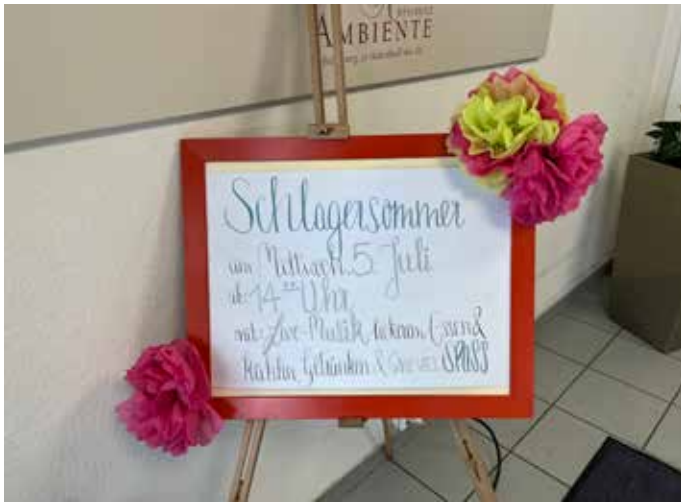 AMBIENTE
Schlagersommer
am Mittwoch, 5. Juli
ab 14 Uhr
mit: Live-Musik, leckerem Essen &
kühlen Getränken & ganz viel SPASS